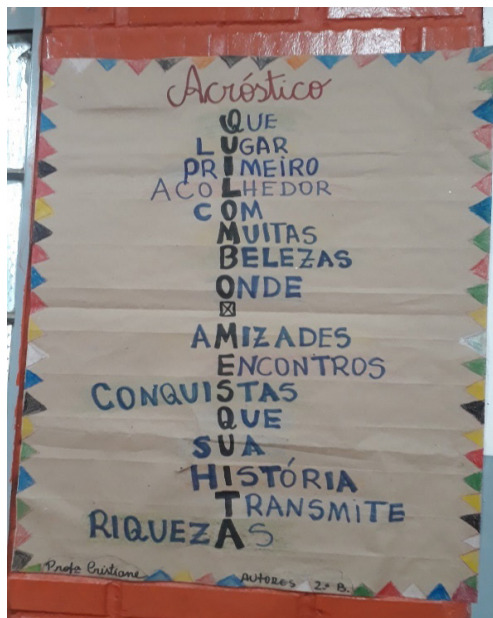 Acróstico
QUE
LUGAR
PRIMEIRO
ACOLHEDOR
COM
MUITAS
BELEZAS
ONDE
AMIZADES
ENCONTROS
CONQUISTAS
QUE
SUA
HISTÓRIA
TRANSMITE
RIQUEZAS
Profa Cristiane AUTORES 2.º B.